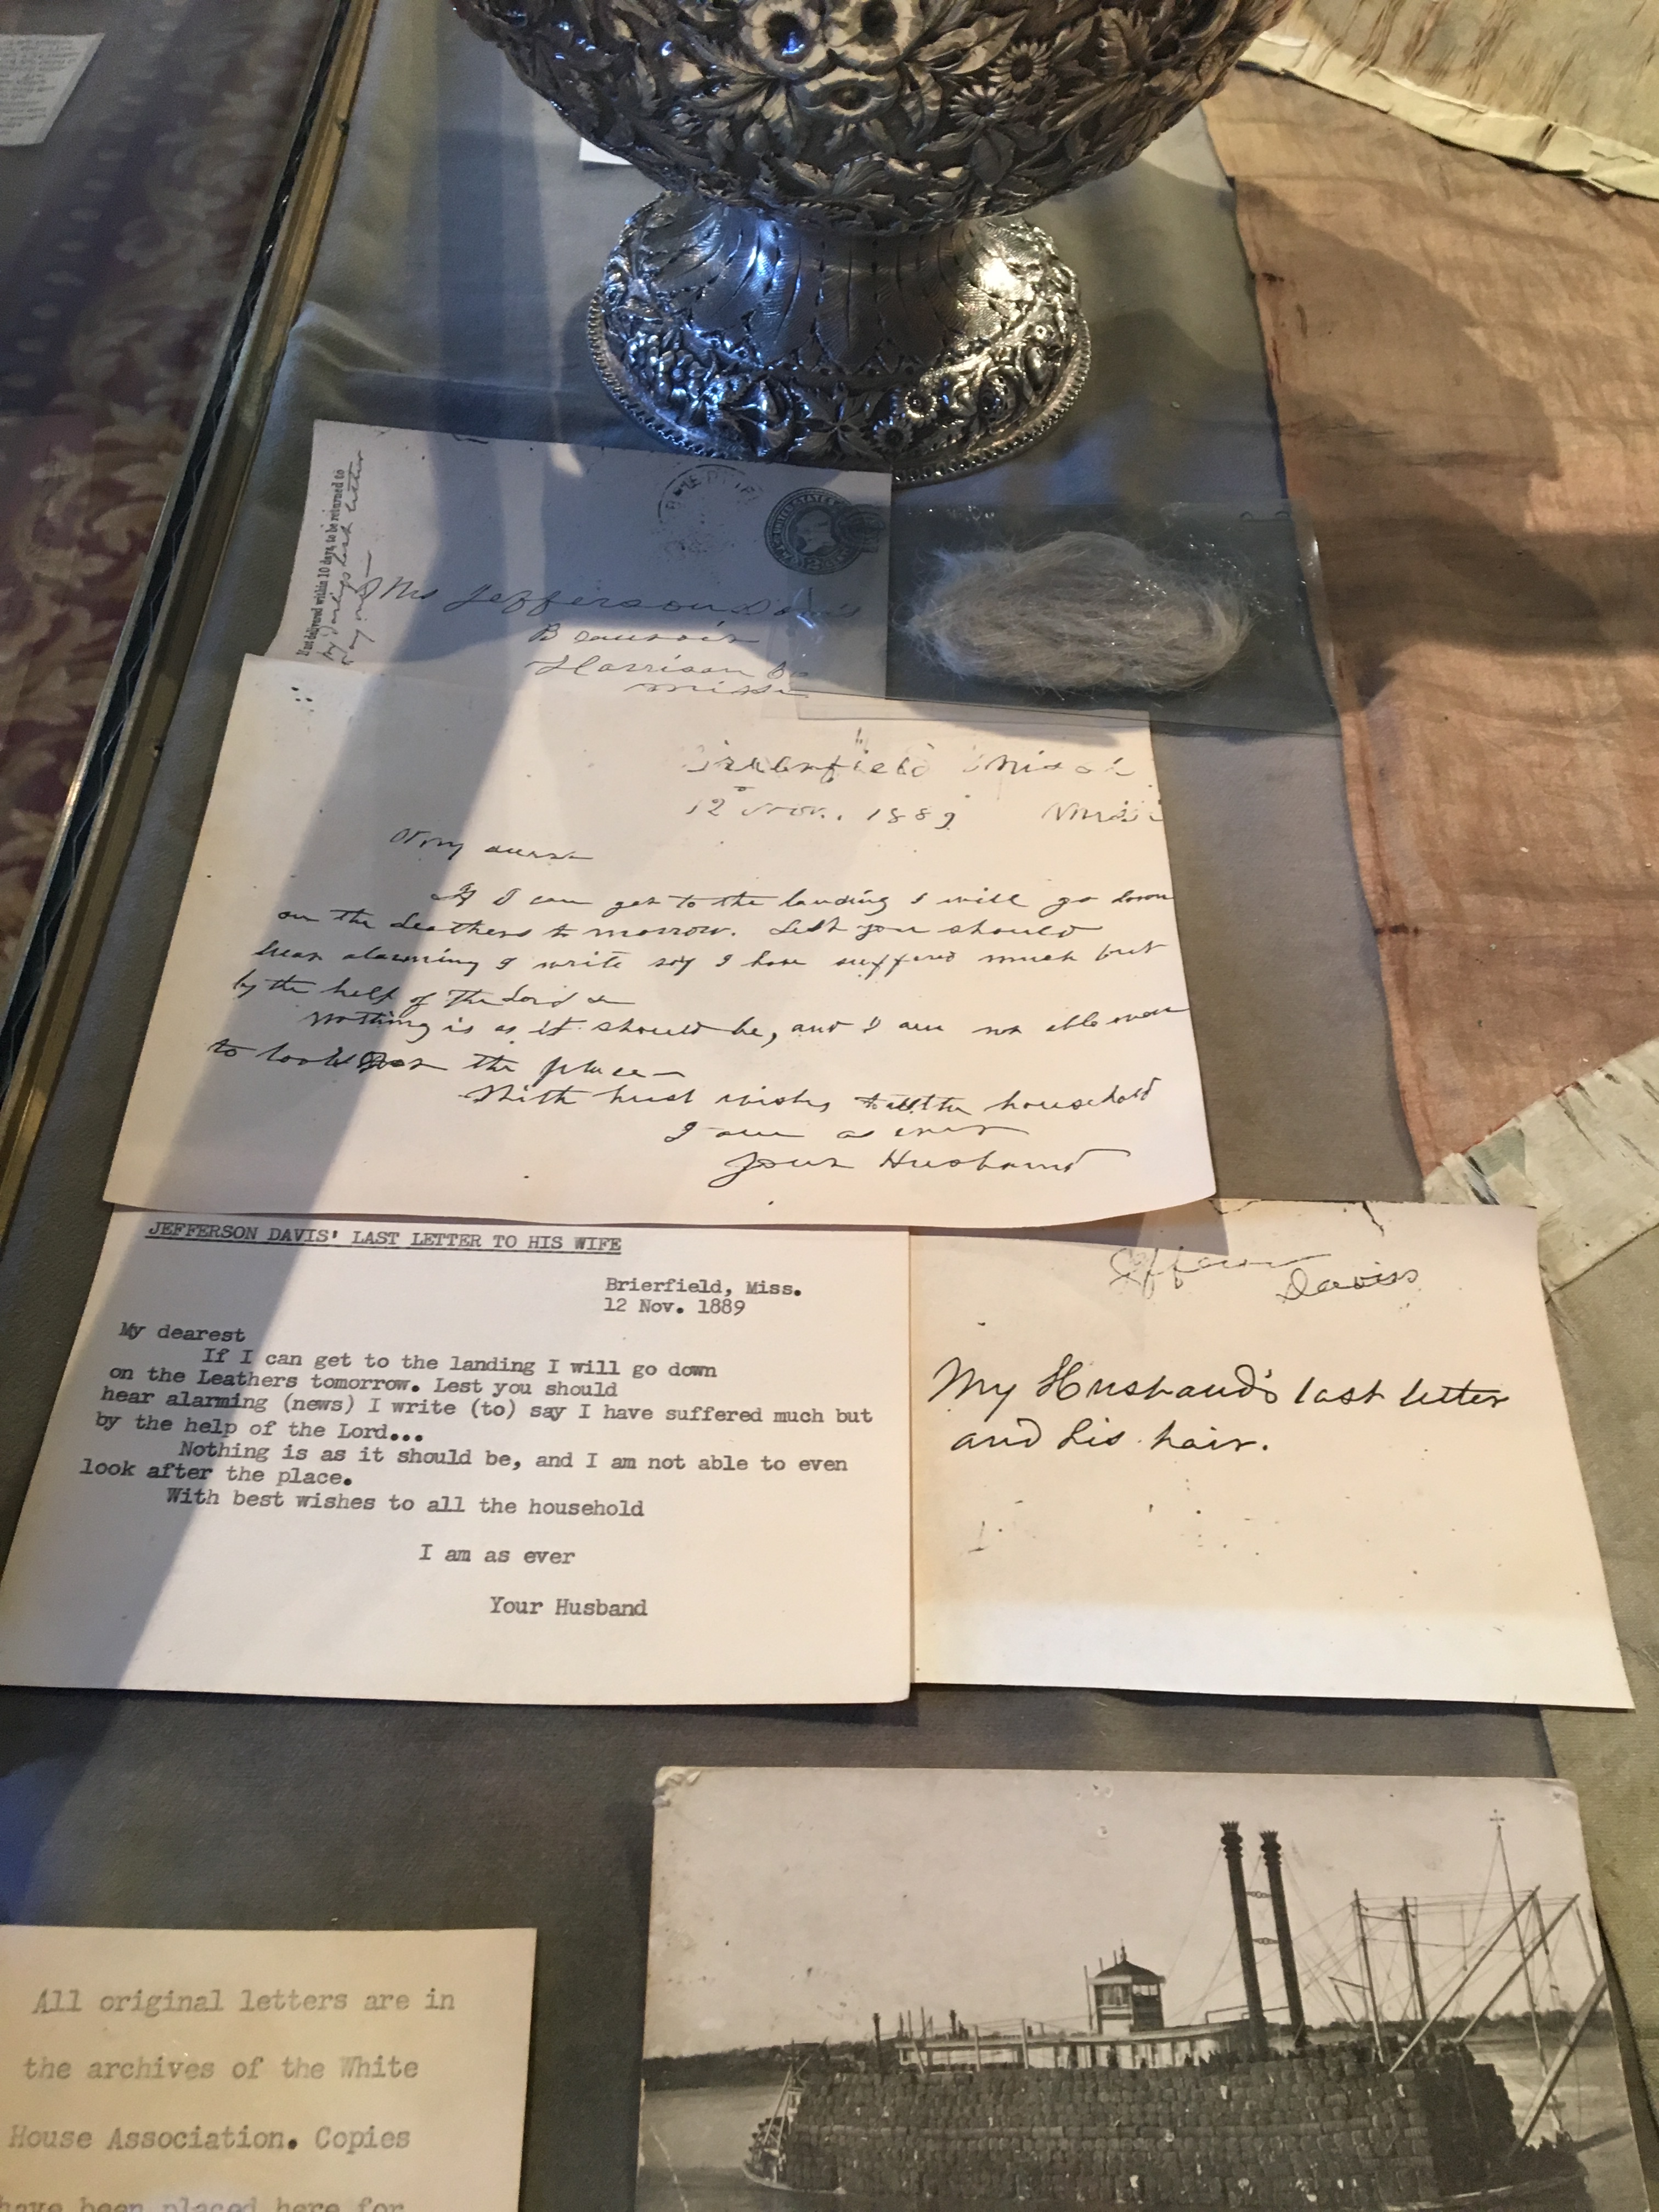 If not delivered within 10 days, to be returned to
my darlings last letter
UNITED STATES
Mrs Jefferson Davis
Beauvoir
Harrison Co
Missi
Brierfield Miss
12 Nov. 1889
My dearest
If I can get to the landing I will go down
on the Leathers to morrow. Lest you should
hear alarming I write say I have suffered much but
by the help of the Lord &
Nothing is as it should be, and I am not able even
to look the place—
With best wishes to all the household
I am as ever
Your Husband
JEFFERSON DAVIS' LAST LETTER TO HIS WIFE
Brierfield, Miss.
12 Nov. 1889
My dearest
If I can get to the landing I will go down
on the Leathers tomorrow. Lest you should
hear alarming (news) I write (to) say I have suffered much but
by the help of the Lord...
Nothing is as it should be, and I am not able to even
look after the place.
With best wishes to all the household
I am as ever
Your Husband
Jefferson
Davis
My Husband's last letter
and his hair.
All original letters are in
the archives of the White
House Association. Copies
have been placed here for